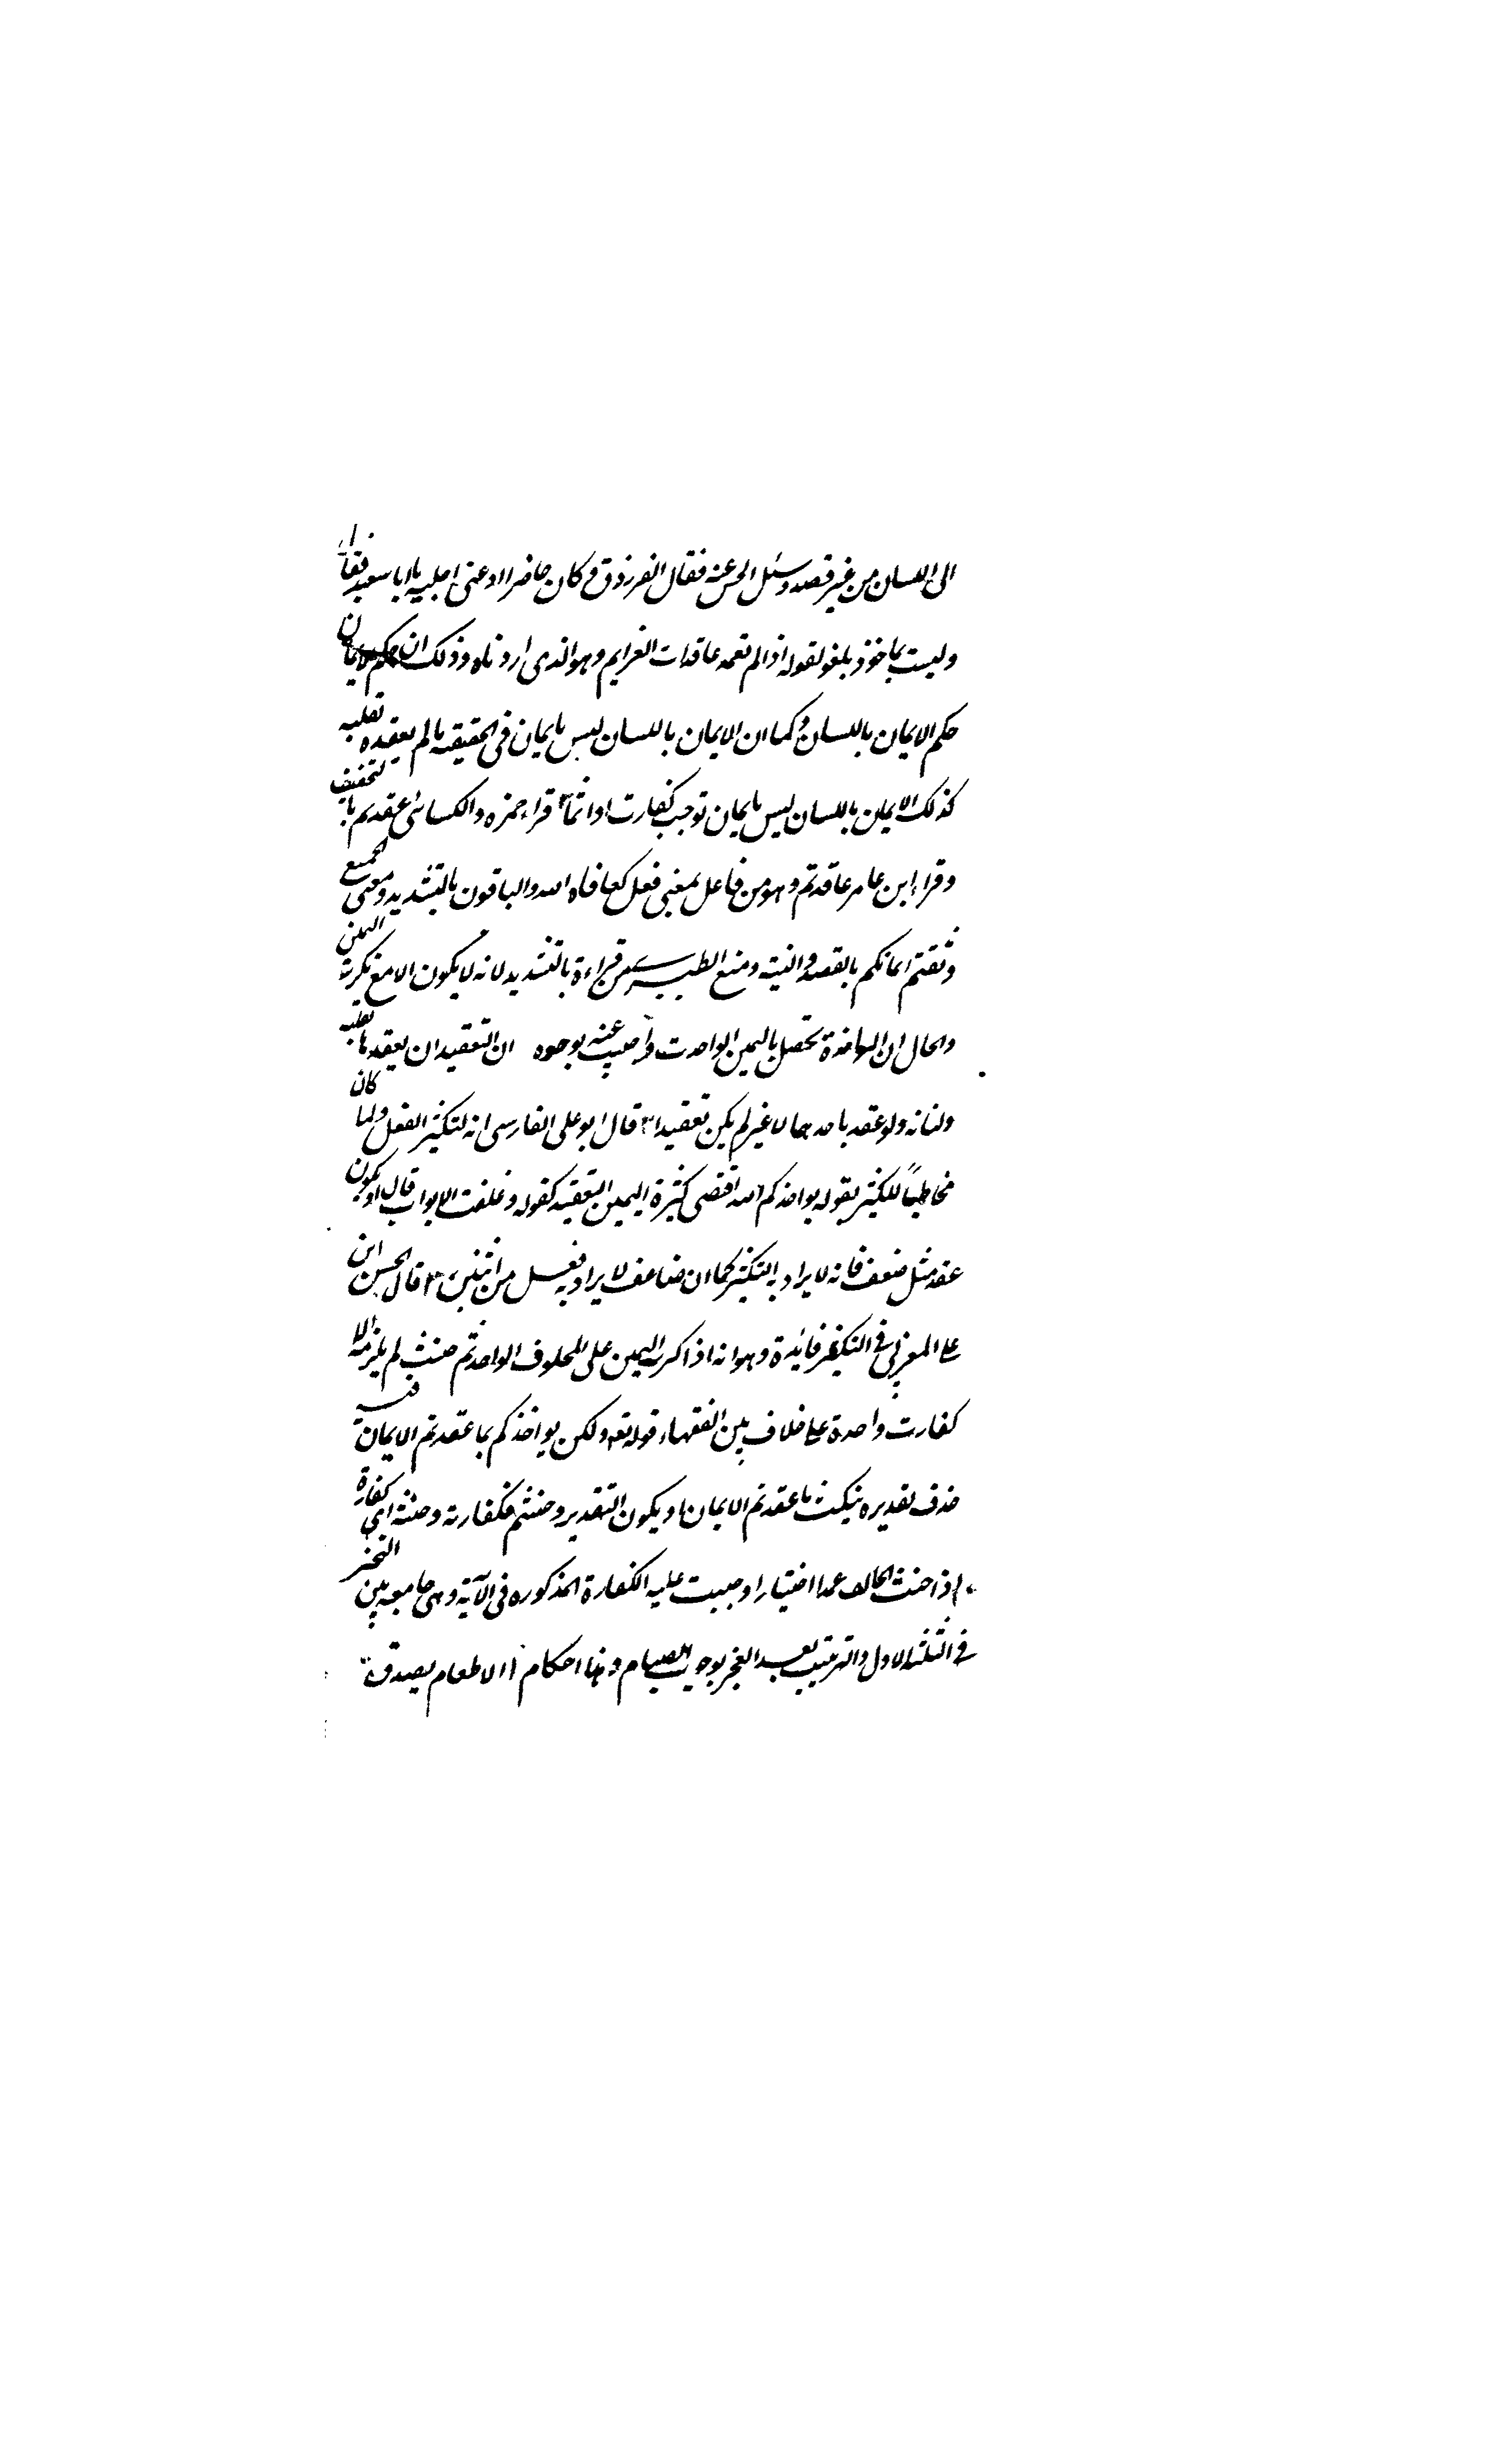 الى اللسان من غير قصد وسئل الحسن عنه فقال الفرزدق وكان حاضرا دعنى اجبه يا ابا سعيد فقال
وليست بماخوذ بلغو لقوله اذا لم تعمد عاقدات العزايم وهو الذى اردناه وذلك ان حكم الايمان
حكم الايمان باللسان وكما ان الايمان باللسان ليس بايمان فى الحقيقه ما لم يعقده بقلبه
كذلك الايمان باللسان ليس بايمان توجب كفارت او اثما ٢ قراء حمزه والكسائى عقدتم بالتخفيف
وقراء ابن عامر عاقدتم وهو من فاعل بمعنى فعل كعافاه الله والباقون بالتشديد ومعنى الجميع
وثقتم ايمانكم بالقصد والنيته ومنع الطبرى من قراءة بالتشديد لانه لا يكون الا مع تكرير اليمين
والحال ان المواخذة تحصل باليمين الواحدت واجيب عنه بوجوه ان التعقيد ان يعقدها بقلبه
ولسانه ولو عقد باحدهما لا غير لم يكن تعقيدا ٢ قال ابو على الفارسى انه لتكثير الفعل ولما كان
مخاطباً للكثير بقوله يواخذكم الله اقتضى كثيرة اليمين التعقيد كقوله وغلقت الابواب قال او يكون
عقد مثل ضعف فانه لا يراد به التكثير كما ان ضاعف لا يراد به فعل من اثنين ٣ قال الحسن ابن
على المغربى فى التكثير فائدة وهو انه اذا كرر اليمين على المحلوف الواحد ثم حنث لم يلزمه الا
كفارت واحدة على خلاف بين الفقهاء قوله تعه ولكن يواخذكم بما عقدتم الايمان فيه
حذف تقديره بنكث ما عقدتم الايمان او يكون التقدير وحنثتم فكفارته وحنثه اى كفارة
اذا حنث الحالف عمدا اختيارا وجبت عليه الكفارة المذكوره فى الآية وهى جامعه بين التخيير
فى الثلثه الاول والترتيب بعد العجز بوجوب الصيام وهنا احكام ١ الاطعام يصدق